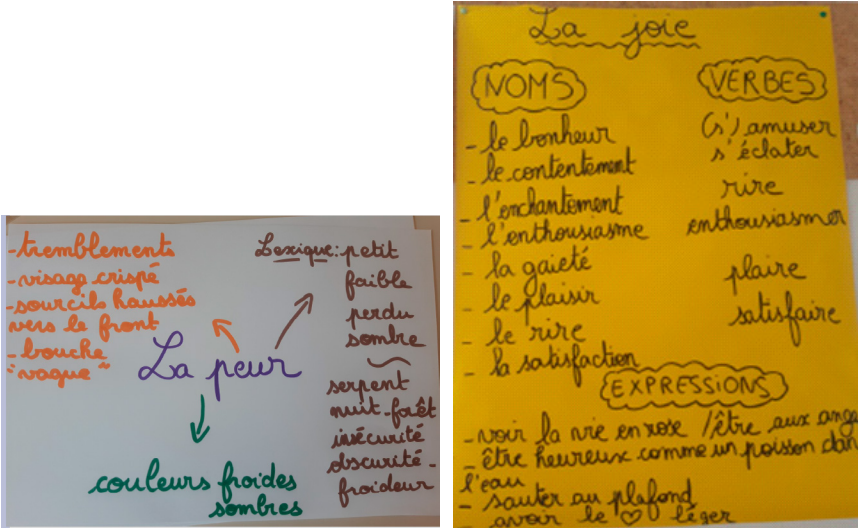 -tremblements
-visage crispé
-sourcils haussés
vers le front
-bouche
"vague"
La peur
Lexique: petit
faible
perdu
sombre
serpent
nuit-forêt
insécurité
obscurité-
froideur
couleurs froides
sombres
La joie
NOMS
- le bonheur
- le contentement
- l'enchantement
- l'enthousiasme
- la gaieté
- le plaisir
- le rire
- la satisfaction
VERBES
(s') amuser
s'éclater
rire
enthousiasmer
plaire
satisfaire
EXPRESSIONS
-voir la vie en rose /être aux ange
-être heureux comme un poisson dan
l'eau
- sauter au plafond
avoir le ♡ léger